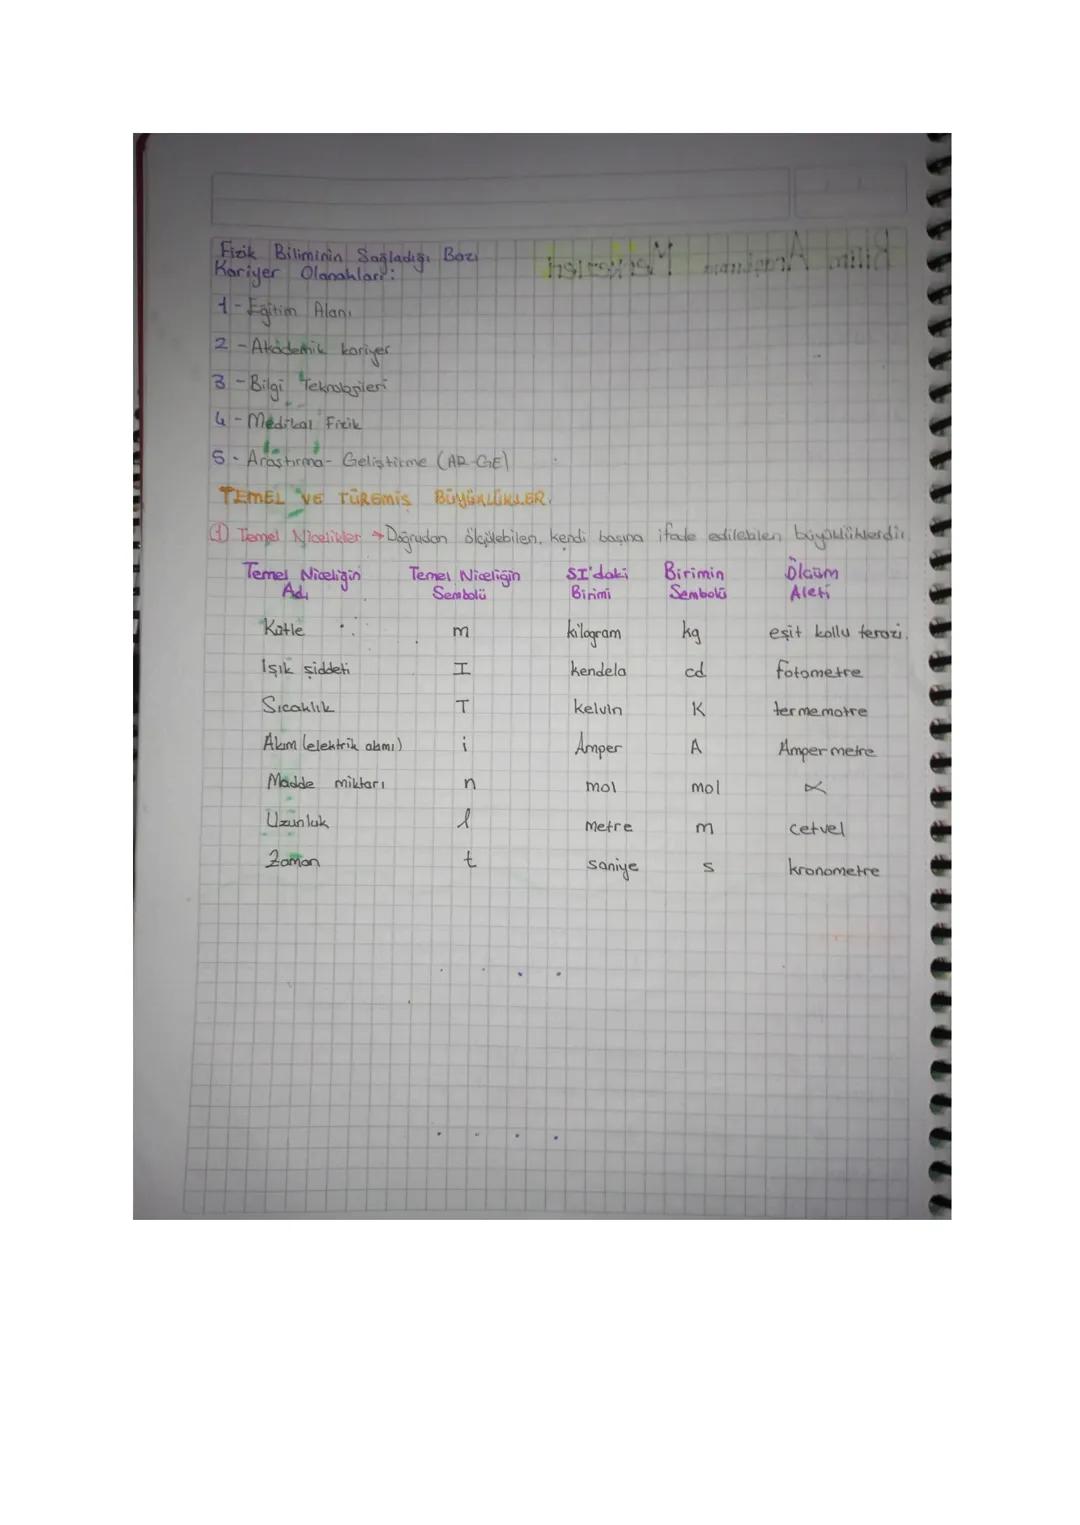 Fizik Biliminin Sağladığı Bazı
Kariyer Olanakları:
1 - Eğitim Alanı
2 - Akademik kariyer
3 - Bilgi Teknolojileri
4 - Medikal Fizik
5 - Araştırma - Geliştirme (AR-GE)
TEMEL VE TÜREMİŞ BÜYÜKLÜKLER.
① Temel Nicelikler → Doğrudan ölçülebilen, kendi başına ifade edilebilen büyüklüklerdir.
Temel Niceliğin Adı Temel Niceliğin Sembolü SI'daki Birimi Birimin Sembolü Ölçüm Aleti
Kütle m kilogram kg eşit kollu terazi.
Işık şiddeti I kendela cd fotometre
Sıcaklık T kelvin K termemotre
Akım (elektrik akımı) i Amper A Ampermetre
Madde miktarı n mol mol
Uzunluk l metre m cetvel
Zaman t saniye s kronometre